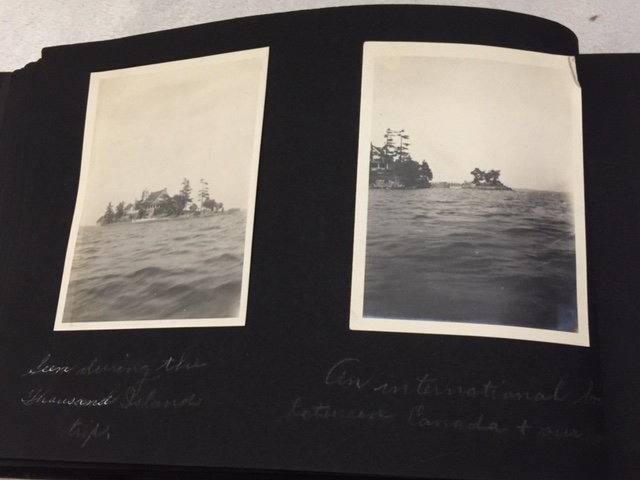 Seen during the
Thousand Islands
trip.
An international
between Canada + our